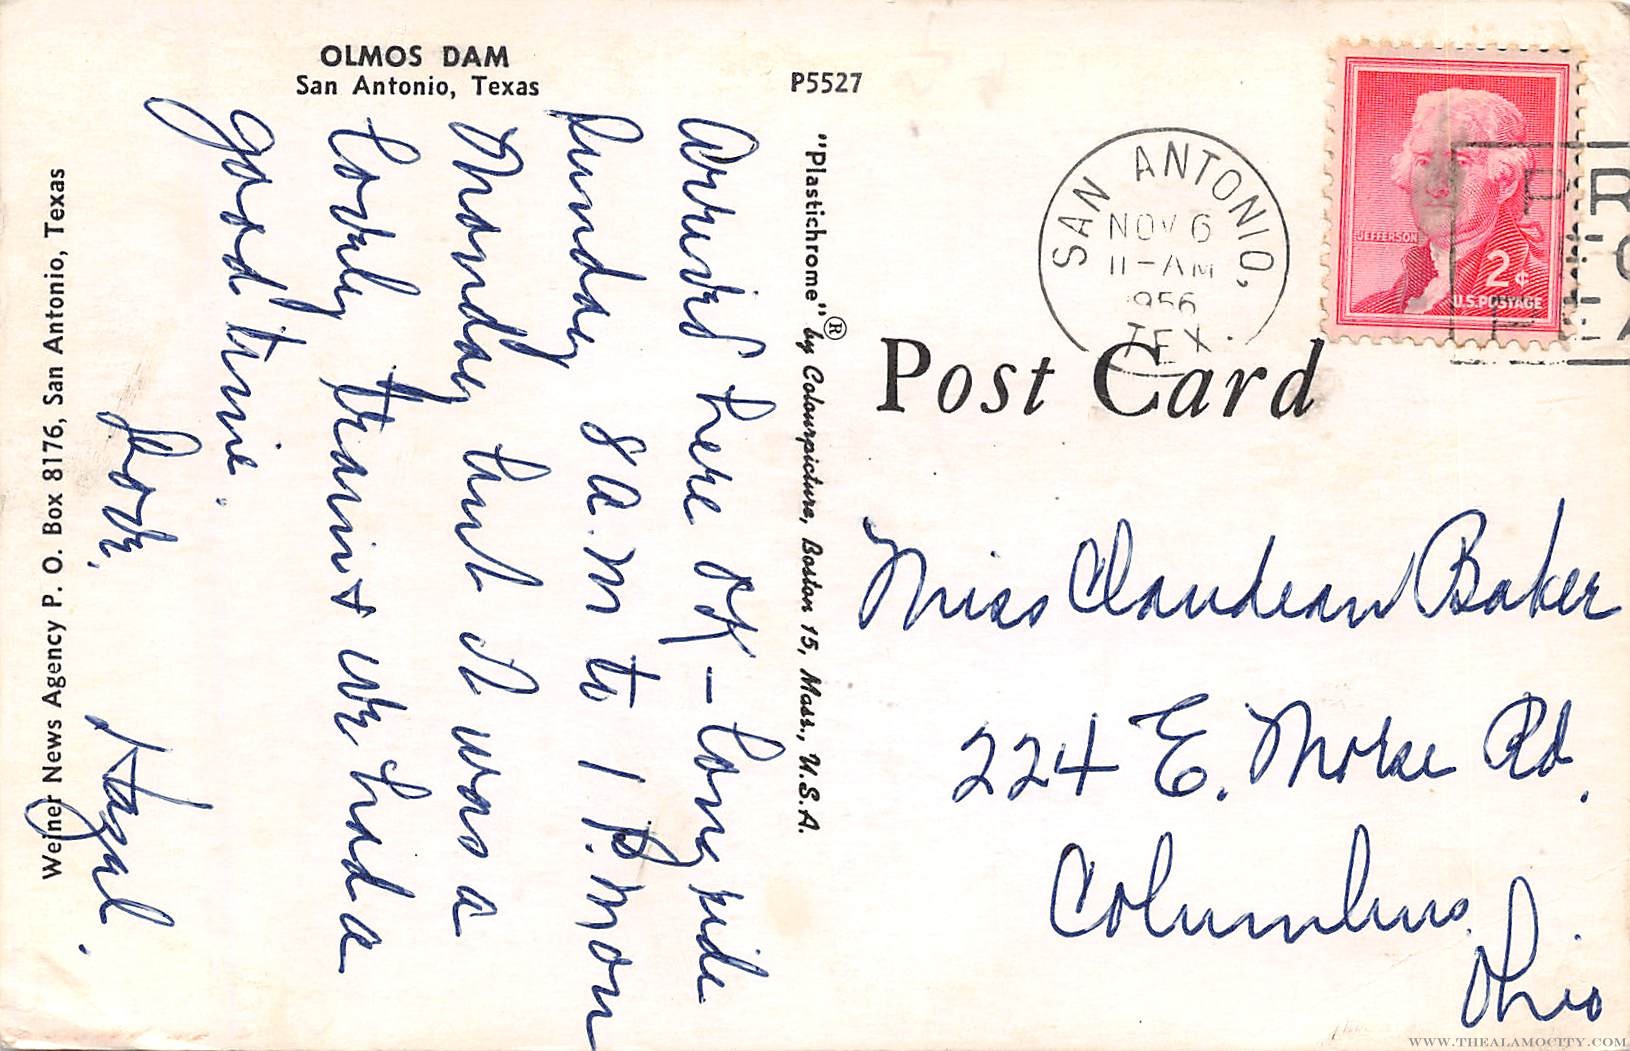 OLMOS DAM
San Antonio, Texas
P5527
Arrived here OK – Long ride
Sunday 8 a.m to 1 P.M on
Monday but it was a
lovely train & we had a
good time.
Love,
Hazel.
Weiner News Agency P. O. Box 8176, San Antonio, Texas
"Plastichrome"® by Colourpicture, Boston 15, Mass., U.S.A.
SAN ANTONIO,
NOV 6
11-AM
1956
TEX.
JEFFERSON
2¢
U.S. POSTAGE
Post Card
Miss Claudean Baker
224 E. Morse Rd.
Columbus,
Ohio
WWW.THEALAMOCITY.COM